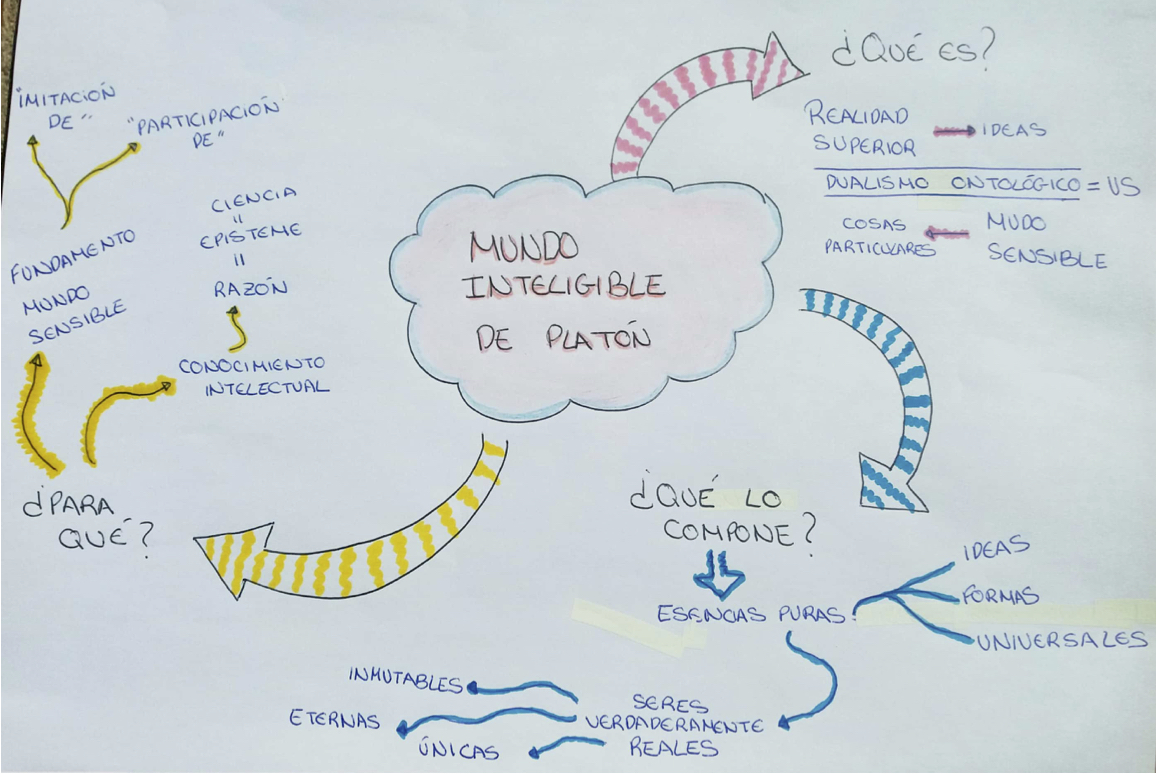 MUNDO
INTELIGIBLE
DE PLATÓN
¿QUÉ ES?
REALIDAD
SUPERIOR
IDEAS
DUALISMO ONTOLÓGICO = VS
COSAS
PARTICULARES
MUDO
SENSIBLE
¿QUÉ LO
COMPONE?
ESENCIAS PURAS:
IDEAS
FORMAS
UNIVERSALES
SERES
VERDADERAMENTE
REALES
INMUTABLES
ETERNAS
ÚNICAS
¿PARA
QUÉ?
FUNDAMENTO
MUNDO
SENSIBLE
"IMITACIÓN
DE"
"PARTICIPACIÓN
DE"
CONOCIMIENTO
INTELECTUAL
RAZÓN
=
EPISTEME
=
CIENCIA